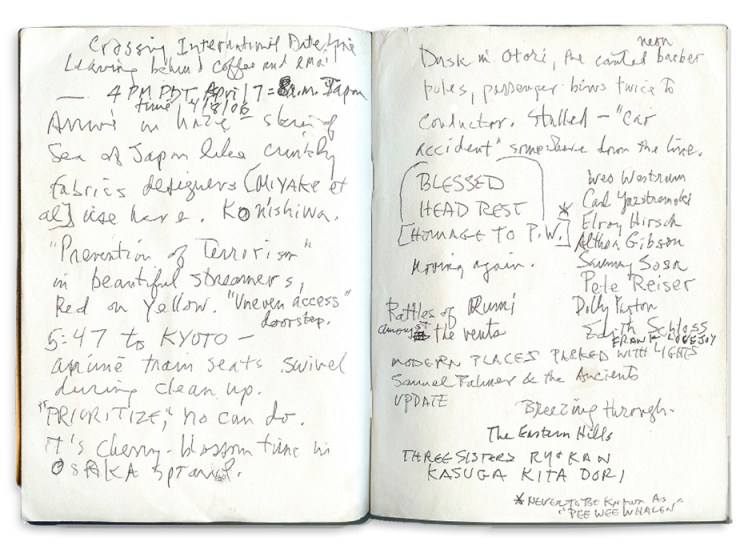 Crossing International Date Line
Leaving behind coffee and email
— 4 PM PDT, April 7 = 8 a.m. Japan
time 4/8/06
Arrive in haze – skein of
Sea of Japan like crinkly
fabrics designers [MIYAKE et
al] use here. Konishiwa.
"Prevention of Terrorism"
in beautiful streamers,
Red on Yellow. "Uneven access"
doorstep.
5:47 to KYOTO –
anime train seats swivel
during clean up.
"PRIORITIZE," no can do.
It's cherry-blossom time in
OSAKA
Dusk in Otori, the canted neon barber
poles, passenger bows twice to
conductor. Stalled – "Car
accident" somewhere down the line.
BLESSED
HEAD REST
[HOMAGE TO P.W.] *
Moving again.
Wes Westrum
Carl Yazstremski
Elroy Hirsch
Althea Gibson
Sammy Sosa
Pete Reiser
Dolly Parton
Edith Schloss
FRANK LOVEJOY
Rattles of Rumi
amongst the vents
MODERN PLACES PARKED WITH LIGHTS
Samuel Palmer & the Ancients
UPDATE
Breezing through.
The Eastern Hills
THREE SISTERS RYOKAN
KASUGA KITA DORI
* NEVER TO BE KNOWN AS
"PEE WEE WHALEN"